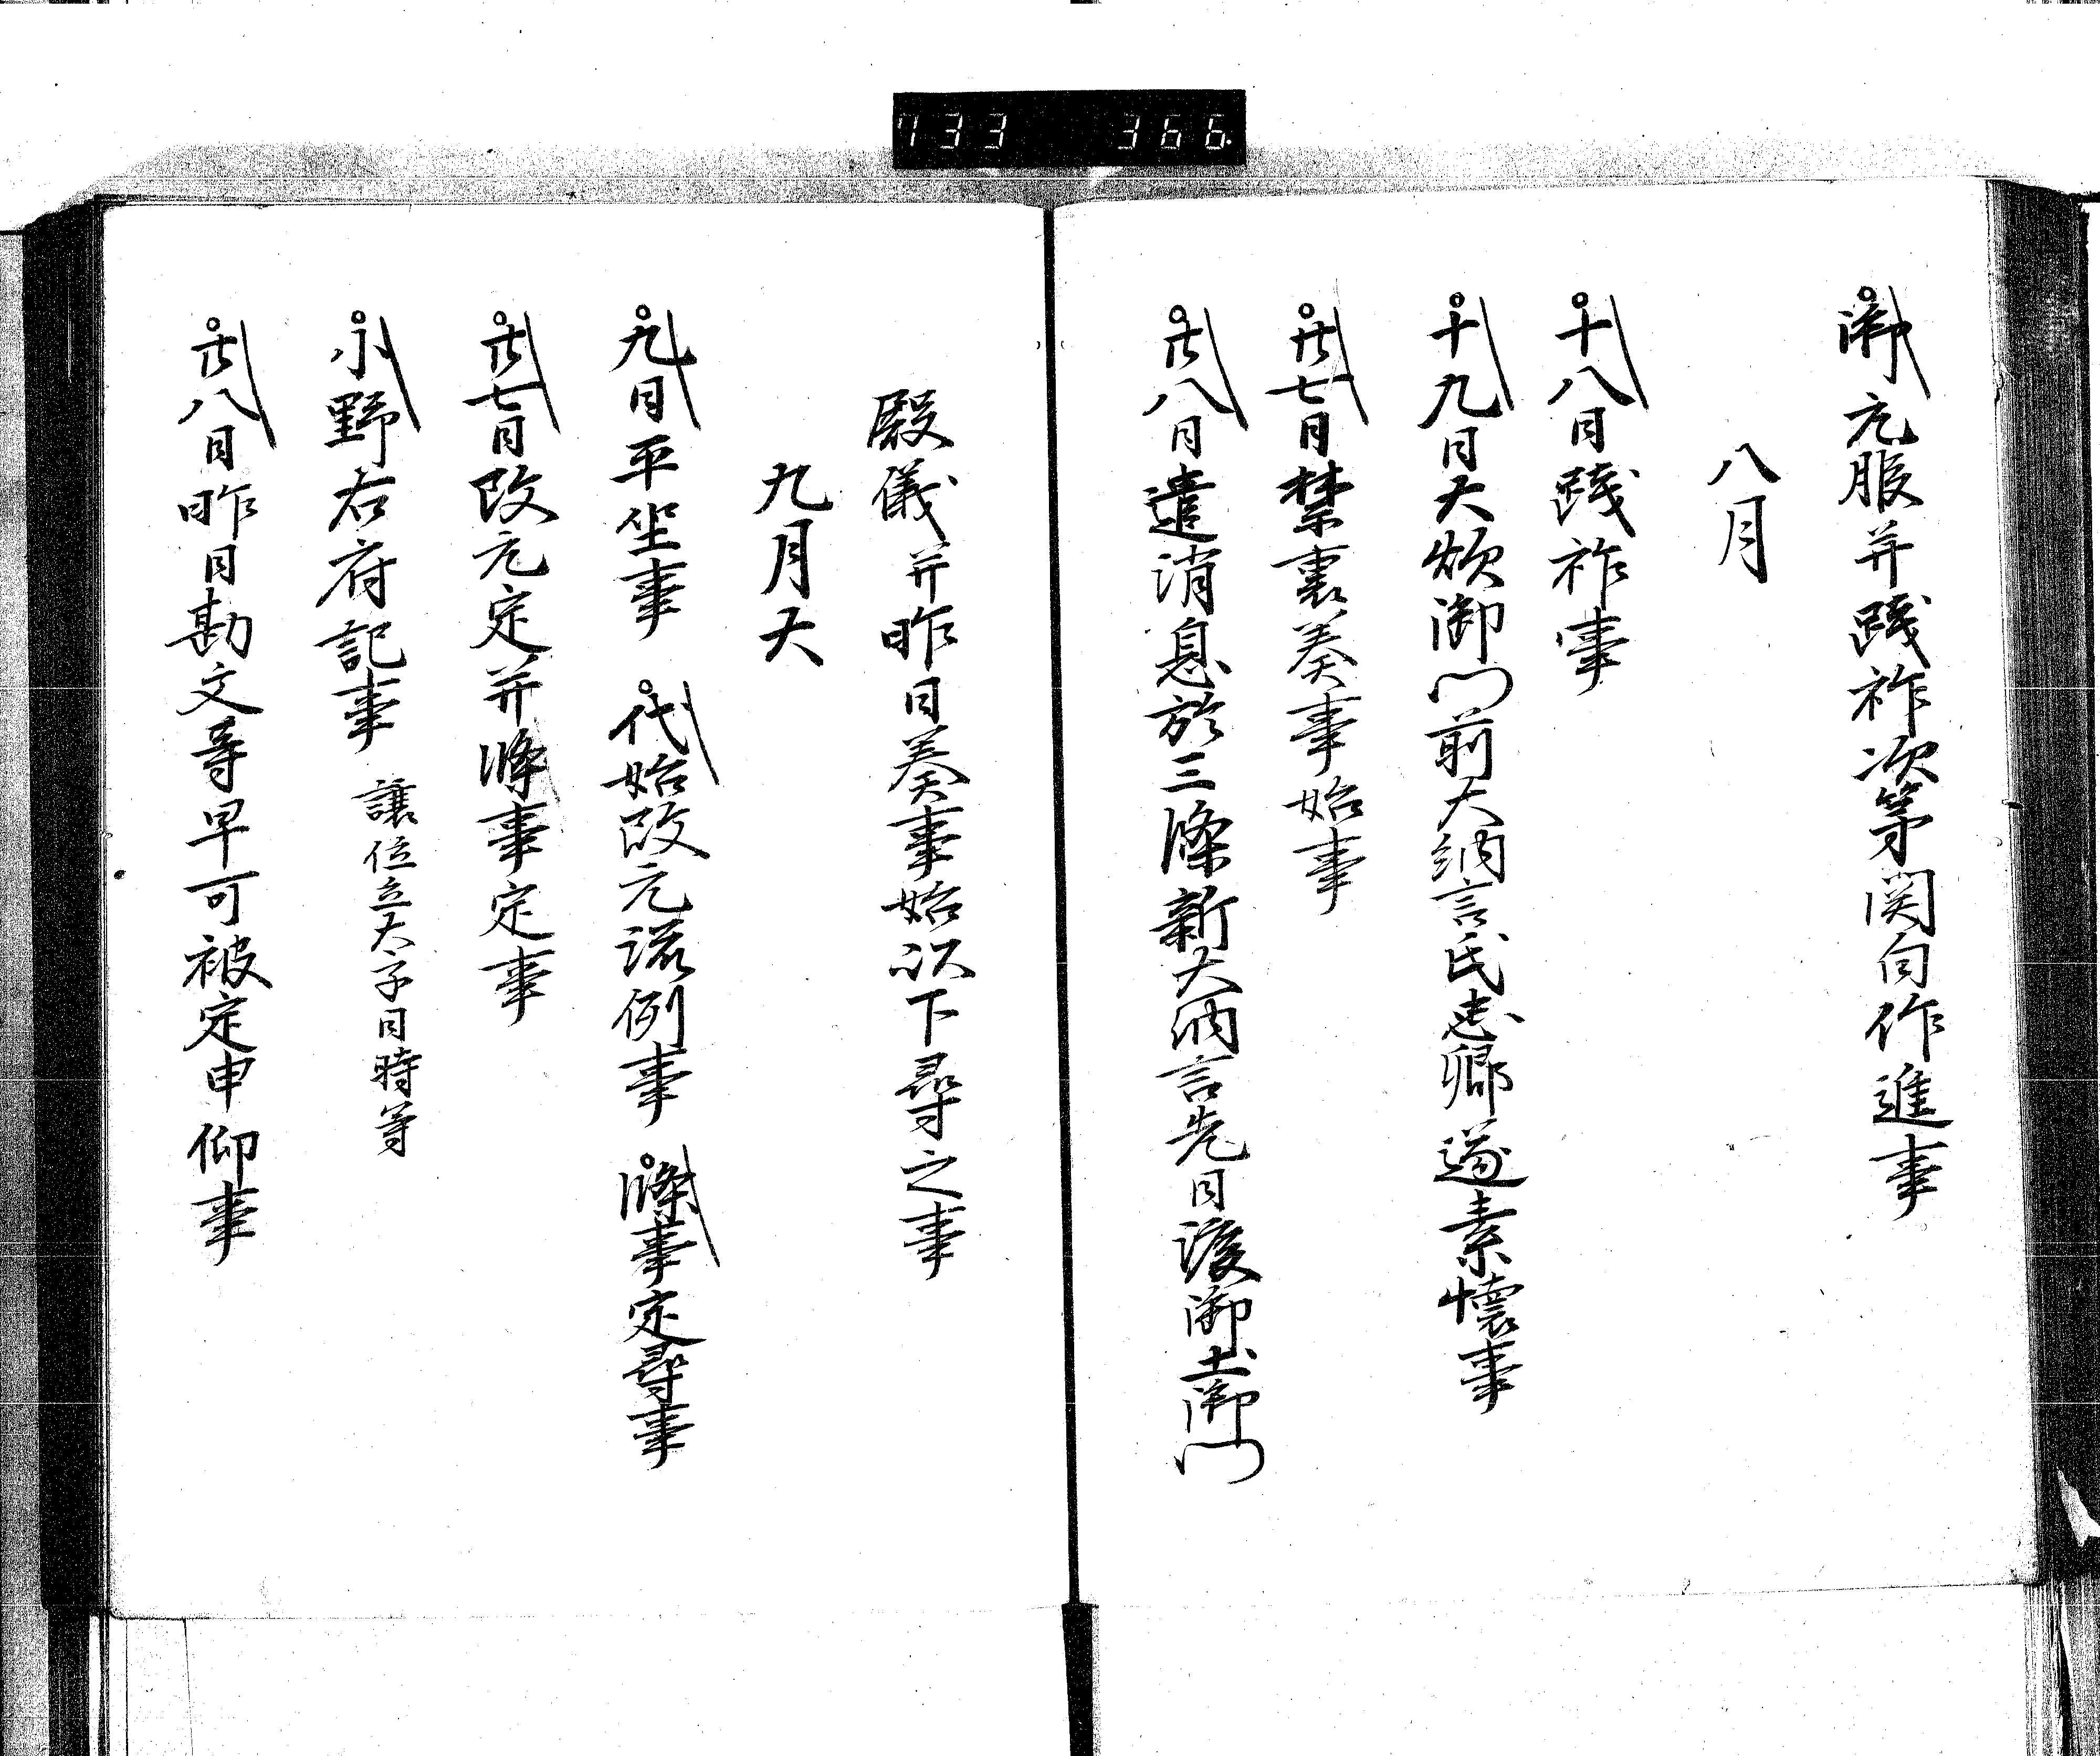 733 366
御元服并踐祚次第関白作進事
八月
十八日踐祚事
十九日大炊御門前大納言氏忠卿遂素懐事
廿七日禁裏奏事始事
廿八日遣消息於三條新大納言先日渡御土御門
殿儀并昨日奏事始以下尋之事
九月大
九日平坐事 代始改元流例事 條事定尋事
廿七日改元定并條事定事
小野右府記事 讓位立太子日時等
廿八日昨日勘文等早可被定申仰事